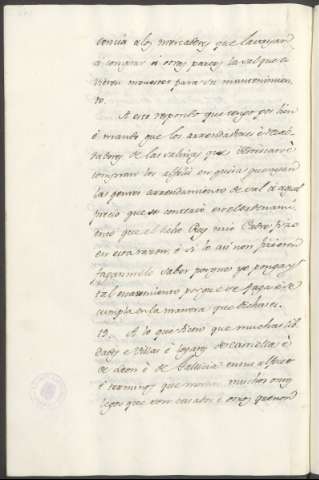 tencia a los mercadores que la vayan
a comprar a otras partes la sal que o
vieren menester para su mantenimien
to.
A esto respondo que tengo por bien
é mando que los arrendadores é Recab
dadores de las salinas que
compraren los en guisa que
las pouren arrendamiento de sal á aquel
precio que se contiene en el ordenami
ento que el dicho Rey mio Padre fizo
en esta razon, é si lo así non ficieren
faganmelo saber porque yo ponga y
tal escarmiento porque se faga é se
cumpla en la manera que dicha es.
19. A lo que dicen que muchas cib
dades e Villas é lugares de Castiella é
de Leon é de Gallicia
é terminos que moran muchos omes
legos que son casados é otros que non